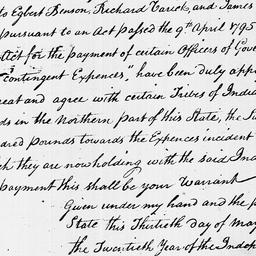 to Egbert Benson, Richard Varick, and James
pursuant to an Act passed the 9th April 1795
for the payment of certain Officers of Gove
Contingent Expences," have been duly appo
treat and agree with certain Tribes of India
ds in the Northern part of this State, the Su
dred pounds towards the Expences incident
ch they are now holding with the said Ind
payment this shall be your Warrant
Given under my hand and the p
State this Thirtieth day of May
the Twentieth Year of the Indep